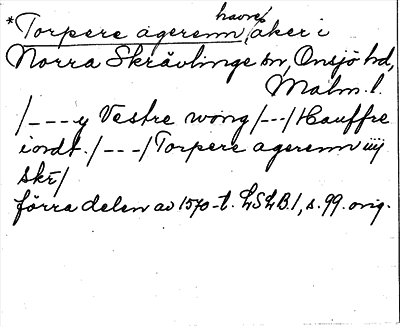 *Torpere agerenn, havre åker i
Norra Skrävlinge sn, Onsjö hd,
Malm. l.
/---y Vestre wong /---/ Hauffre
iordt. /---/ Torpere agerenn iiij
skr/
förra delen av 1570-t. LSLB.1, s. 99. orig.